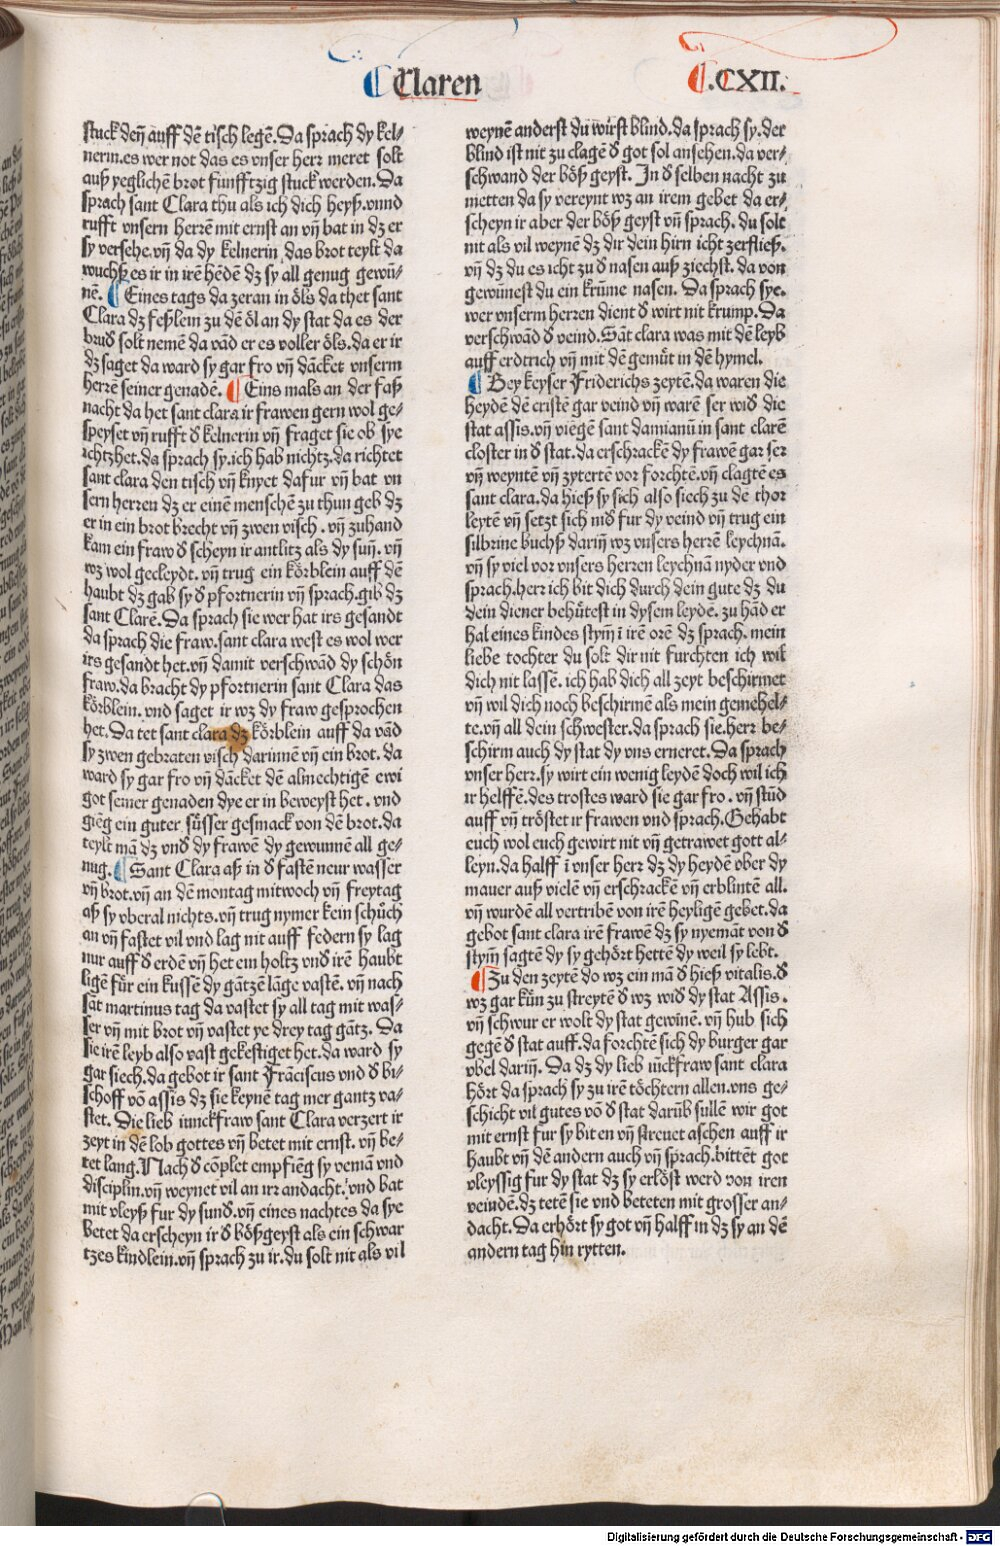 Claren
.CXII.
stuck den̄ auff dē tisch legē. Da sprach dy kel⸗
nerin. es wer not das es vnser herr meret solt
auß yeglichē brot funfftzig stuck werden. Da
sprach sant Clara thu als ich dich heyß. vnnd
rufft vnsern herrē mit ernst an vn̄ bat in dz er
sy versehe. vn̄ da dy kelnerin das brot teylt da
wuchß es ir in irē hēdē dz sy all genug gewū⸗
nē. ¶ Eines tags da zeran in öls da thet sant
Clara dz feßlein zu dē öl an dy stat da es der
brud̄ solt nemē da vād er es voller öls. da er ir
dz saget da ward sy gar fro vn̄ dācket vnserm
herrē seiner genadē. ¶ Eins mals an der faß
nacht da het sant clara ir frawen gern wol ge⸗
speyset vn̄ rufft d̄ kelnerin vn̄ fraget sie ob sye
ichtzhet. da sprach sy. ich hab nichtz. da richtet
sant clara den tisch vn̄ knyet dafur vn̄ bat vn
sern herren dz er einē menschē zu thun geb dz
er in ein brot brecht vn̄ zwen visch. vn̄ zuhand
kam ein fraw d̄ scheyn ir antlitz als dy sun̄. vn̄
wz wol gecleydt. vn̄ trug ein körblein auff dē
haubt dz gab sy d̄ pfortnerin vn̄ sprach. gib dz
sant Clarē. Da sprach sie wer hat irs gesandt
da sprach die fraw. sant clara west es wol wer
irs gesandt het. vn̄ damit verschwād dy schön
fraw. da bracht dy pfortnerin sant Clara das
körblein. vnd saget ir wz dy fraw gesprochen
het. Da tet sant clara dz körblein auff da vād
sy zwen gebraten visch darinnē vn̄ ein brot. da
ward sy gar fro vn̄ dācket dē almechtigē ewi
got seiner genaden dye er in beweyst het. vnd
gieḡ ein guter süsser gesmack von dē brot. da
teylt mā dz vnd̄ dy frawē dy gewunnē all ge⸗
nug. ¶ Sant Clara aß in d̄ fastē neur wasser
vn̄ brot. vn̄ an dē montag mitwoch vn̄ freytag
aß sy vberal nichts. vn̄ trug nymer kein schůch
an vn̄ fastet vil vnd lag nit auff federn sy lag
nur auff d̄ erdē vn̄ het ein holtz vnd̄ irē haubt
ligē für ein kusse dy gātzē lāge vastē. vn̄ nach
sāt martinus tag da vastet sy all tag mit was⸗
ser vn̄ mit brot vn̄ vastet ye drey tag gātz. Da
sie irē leyb also vast gekestiget het. da ward sy
gar siech. da gebot ir sant Frāciscus vnd d̄ bi⸗
schoff vō assis dz sie keynē tag mer gantz va⸗
stet. Die lieb iunckfraw sant Clara verzert ir
zeyt in dē lob gottes vn̄ betet mit ernst. vn̄ be⸗
tet lang. Nach d̄ cōplet empfieḡ sy vemā vnd
disciplin. vn̄ weynet vil an irr andacht. vnd bat
mit vleyß fur dy sund̄. vn̄ eines nachtes da sye
betet da erscheyn ir d̄ bößgeyst als ein schwar
tzes kindlein. vn̄ sprach zu ir. du solt nit als vil
weynē anderst du würst blind. da sprach sy. der
blind ist nit zu clagē d̄ got sol ansehen. da ver⸗
schwand der böß geyst. In d̄ selben nacht zu
metten da sy vereynt wz an irem gebet da er⸗
scheyn ir aber der böß geyst vn̄ sprach. du solt
nit als vil weynē dz dir dein hirn icht zerfließ.
vn̄ dz du es icht zu d̄ nasen auß ziechst. da von
gewūnest du ein krūme nasen. Da sprach sye.
wer vnserm herren dient d̄ wirt nit krump. Da
verschwād d̄ veind. Sāt clara was mit dē leyb
auff erdtrich vn̄ mit dē gemůt in dē hymel.
¶ Bey keyser Friderichs zeytē. da waren die
heydē dē cristē gar veind vn̄ warē ser wid̄ die
stat assis. vn̄ viēgē sant damianū in sant clarē
closter in d̄ stat. da erschrackē dy frawē gar ser
vn̄ weyntē vn̄ zytertē vor forchtē. vn̄ clagtē es
sant clara. da hieß sy sich also siech zu dē thor
leytē vn̄ setzt sich nid̄ fur dy veind vn̄ trug ein
silbrine buchß darin̄ wz vnsers herrē leychnā.
vn̄ sy viel vor vnsers herren leychnā nyder vnd
sprach. herr ich bit dich durch dein gute dz du
dein diener behütest in dysem leydē. zu hād er
hal eines kindes stym̄ i irē orē dz sprach. mein
liebe tochter du solt dir nit furchten ich wil
dich nit lassē. ich hab dich all zeyt beschirmet
vn̄ wil dich noch beschirmē als mein gemehel⸗
te. vn̄ all dein schwester. da sprach sie. herr be⸗
schirm auch dy stat dy vns erneret. Da sprach
vnser herr. sy wirt ein wenig leydē doch wil ich
ir helffē. des trostes ward sie gar fro. vn̄ stūd
auff vn̄ tröstet ir frawen vnd sprach. Gehabt
euch wol euch gewirt nit vn̄ getrawet gott al⸗
leyn. da halff ī vnser herr dz dy heydē ober dy
mauer auß vielē vn̄ erschrackē vn̄ erblintē all.
vn̄ wurdē all vertribē von irē heyligē gebet. da
gebot sant clara irē frawē dz sy nyemāt von d̄
stym̄ sagtē dy sy gehört hettē dy weil sy lebt.
¶ Zu den zeytē do wz ein mā d̄ hieß vitalis. d̄
wz gar kůn zu streytē d̄ wz wid̄ dy stat Assis.
vn̄ schwur er wolt dy stat gewinē. vn̄ hub sich
gegē d̄ stat auff. da forchtē sich dy burger gar
vbel darin̄. Da dz dy lieb iūckfraw sant clara
hört da sprach sy zu irē töchtern allen. vns ge⸗
schicht vil gutes vō d̄ stat darūb sullē wir got
mit ernst fur sy biten vn̄ streuet aschen auff ir
haubt vn̄ dē andern auch vn̄ sprach. bittēt got
vleyssig fur dy stat dz sy erlöst werd von iren
veindē. dz tetē sie vnd beteten mit grosser an⸗
dacht. Da erhört sy got vn̄ halff in dz sy an dē
andern tag hin rytten.
Digitalisierung gefördert durch die Deutsche Forschungsgemeinschaft - DFG